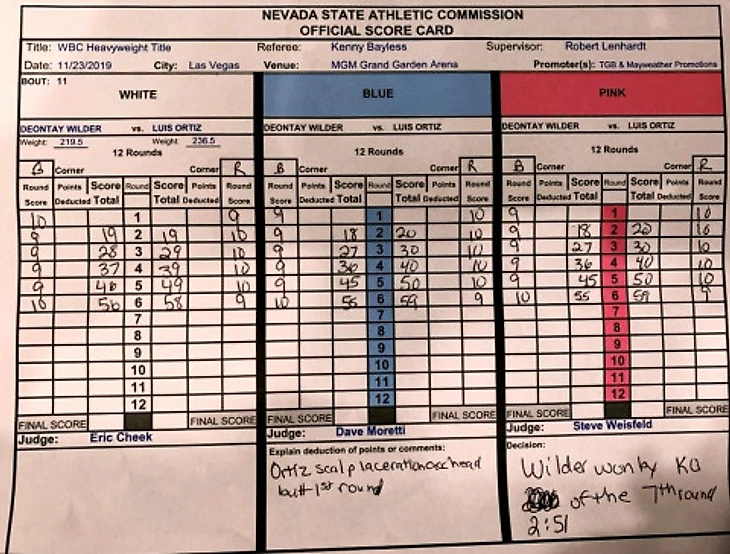 NEVADA STATE ATHLETIC COMMISSION
OFFICIAL SCORE CARD
Title: WBC Heavyweight Title Referee: Kenny Bayless Supervisor: Robert Lenhardt
Date: 11/23/2019 City: Las Vegas Venue: MGM Grand Garden Arena Promoter(s): TGB & Mayweather Promotions
BOUT: 11
WHITE BLUE PINK
DEONTAY WILDER vs. LUIS ORTIZ DEONTAY WILDER vs. LUIS ORTIZ DEONTAY WILDER vs. LUIS ORTIZ
Weight: 219.5 Weight: 236.5
12 Rounds 12 Rounds 12 Rounds
B Corner Corner R B Corner Corner R B Corner Corner R
Round Points Score Round Score Points Round Round Points Score Round Score Points Round Round Points Score Round Score Points Round
Score Deducted Total Total Deducted Score Score Deducted Total Total Deducted Score Score Deducted Total Total Deducted Score
10 1 9 9 1 10 9 1 10
9 19 2 19 10 9 18 2 20 10 9 18 2 20 10
9 28 3 29 10 9 27 3 30 10 9 27 3 30 10
9 37 4 39 10 9 36 4 40 10 9 36 4 40 10
9 46 5 49 10 9 45 5 50 10 9 45 5 50 10
10 56 6 58 9 10 55 6 59 9 10 55 6 59 9
7 7 7
8 8 8
9 9 9
10 10 10
11 11 11
12 12 12
FINAL SCORE FINAL SCORE FINAL SCORE FINAL SCORE FINAL SCORE FINAL SCORE
Judge: Eric Cheek Judge: Dave Moretti Judge: Steve Weisfeld
Explain deduction of points or comments: Decision:
Ortiz scalp laceration head
butt 1st round
Wilder won by KO
of the 7th round
2:51